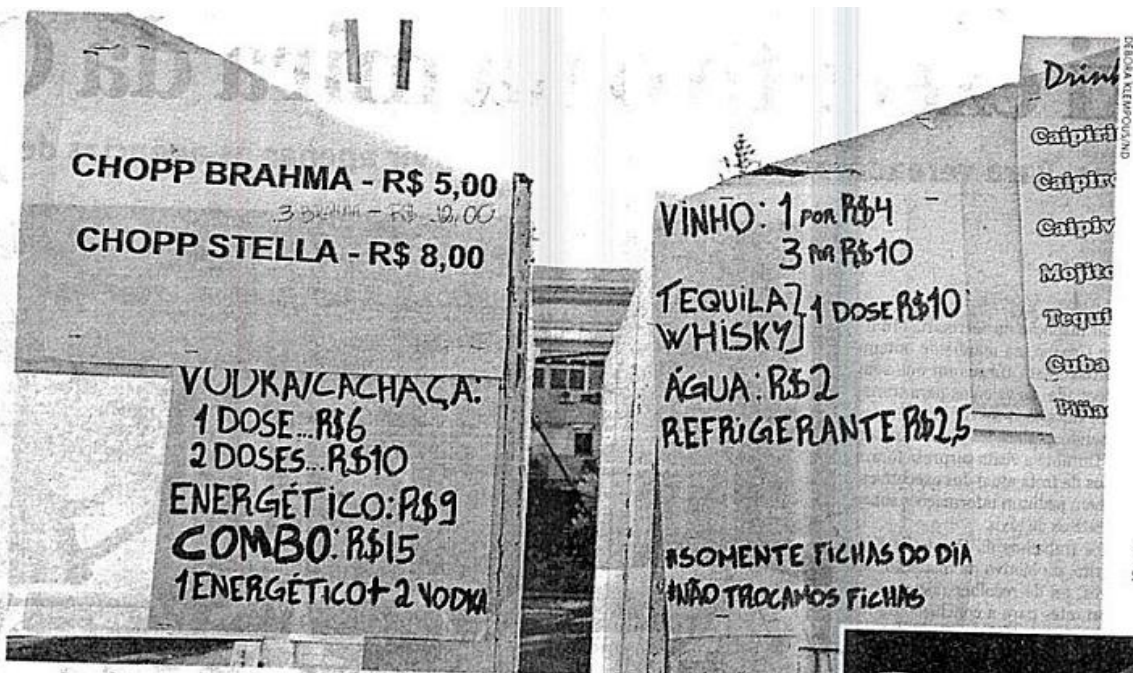 CHOPP BRAHMA - R$ 5,00
3 BRAHMA - R$ 12,00
CHOPP STELLA - R$ 8,00
VODKA/CACHAÇA:
1 DOSE...R$6
2 DOSES...R$10
ENERGÉTICO: R$9
COMBO: R$15
1 ENERGÉTICO + 2 VODKA
VINHO: 1 POR R$4
3 POR R$10
TEQUILA] 1 DOSE R$10
WHISKY]
ÁGUA: R$2
REFRIGERANTE R$2,5
*SOMENTE FICHAS DO DIA
*NÃO TROCAMOS FICHAS
Drink
Caipiri
Caipiro
Caipiv
Mojito
Tequi
Cuba
Piña
DEBORA KLEMPOUS/ND